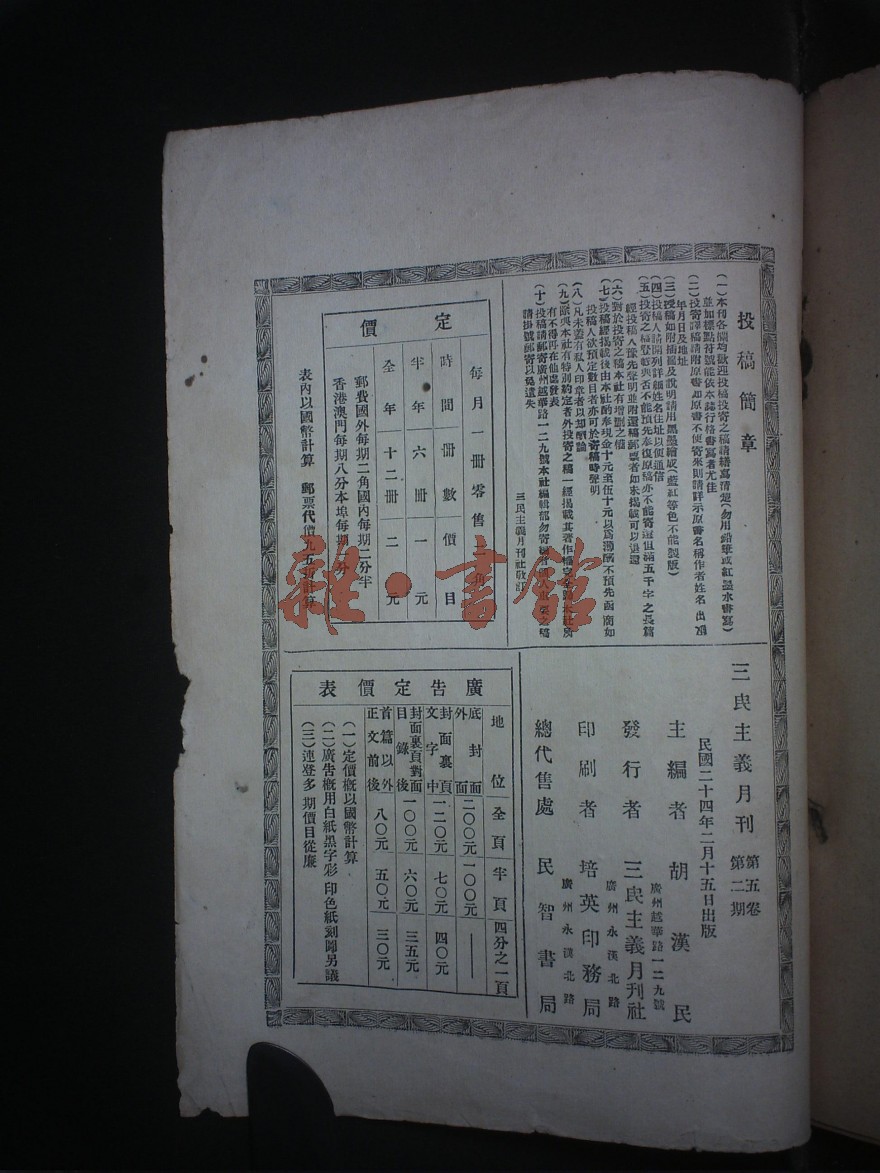 投稿簡章
(一)本刊各欄均歡迎投稿投寄之稿請繕寫清楚(勿用鉛筆或紅墨水書寫)
並加標點符號能依本誌行格書寫者尤佳
(二)投寄譯稿請附原書如原書不便寄來則請詳示原書名稱作者姓名出版
年月日及地址
(三)投稿如附插圖及說明請用黑墨繪成(藍紅等色不能製版)
(四)投稿人請開列詳細姓名住址以便通信
(五)投寄之稿登載與否不能預先奉復原稿亦不能寄還但滿五千字之長篇
經投稿人豫先聲明並附還稿郵票者如未揭載可以退還
(六)對於投寄之稿本社有增删之權
(七)投稿經揭載後由本社酌奉現金十元至伍十元以爲薄酬不預先函商如
投稿人欲預定數目者亦可於寄稿時聲明
(八)凡未蓋有私人印章者以却酬論
(九)除與本社有特別約定者外投寄之稿一經揭載其著作權完全歸本社所
有不得再在他處發表
(十)投稿請郵寄廣州越華路一二九號本社編輯部勿寄
請掛號郵寄以免遺失
三民主義月刊社
定價
每月一冊零售二角
時間 冊數 價目
半年 六冊 一元
全年 十二冊 二元
郵費國外每期二角國內每期二分半
香港澳門每期八分本埠每期分
表內以國幣計算 郵票代價九五折計算
三民主義月刊 第五卷 第二期
民國二十四年二月十五日出版
主編者 胡漢民
廣州越華路一二九號
發行者 三民主義月刊社
廣州永漢北路
印刷者 培英印務局
廣州永漢北路
總代售處 民智書局
廣告定價表
地位 全頁 半頁 四分之一頁
底封面外面 二〇〇元 一〇〇元 ——
封面裏頁文字中 一二〇元 七〇元 四〇元
封面裏頁對面目錄後 一〇〇元 六〇元 三五元
首篇以外正文前後 八〇元 五〇元 三〇元
(一)定價概以國幣計算
(二)廣告概用白紙黑字彩印色紙刻圖另議
(三)連登多期價目從廉
雜·書館